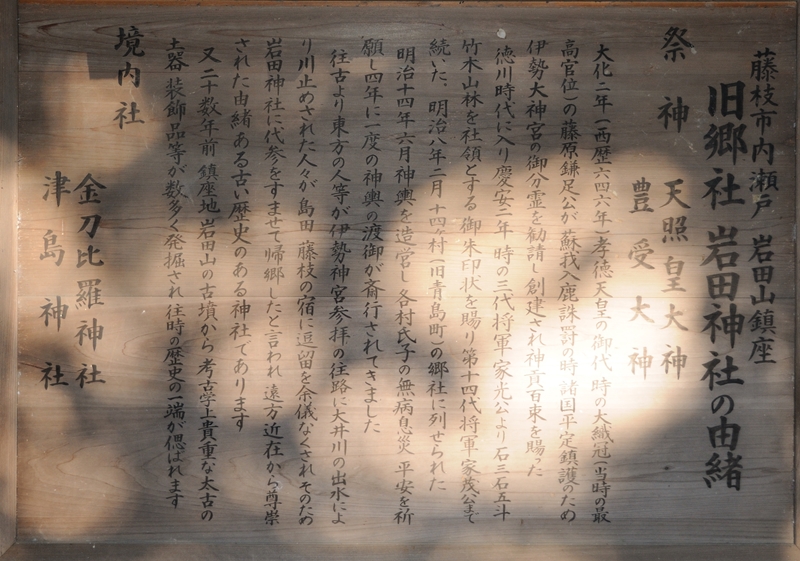 藤枝市内瀬戸 岩田山鎮座
旧郷社 岩田神社の由緒
祭神 天照皇大神
豊受大神
大化二年(西歴六四六年)孝徳天皇の御代 時の大織冠(当時の最
高官位)の藤原鎌足公が 蘇我入鹿誅罸の時諸国平定鎮護のため
伊勢大神宮の御分霊を勧請し創建され神貢百束を賜った
徳川時代に入り慶安二年 時の三代将軍家光公より 石三石五斗
竹木山林を社領とする 御朱印状を賜り第十四代将軍家茂公まで
続いた、明治八年二月 十四ヶ村(旧青島町)の郷社に列せられた
明治十四年六月神輿を造営し 各村氏子の無病息災 平安を祈
願し四年に一度の神輿の渡御が斎行されてきました
往古より東方の人等が伊勢神宮参拝の往路に大井川の出水によ
り川止めされた人々が島田 藤枝の宿に逗留を余儀なくされ そのため
岩田神社に代参をすませて帰郷したと言われ 遠方 近在から尊崇
された由緒ある古い歴史のある神社であります
又二十数年前 鎮座地 岩田山の古墳から 考古学上貴重な太古の
土器 装飾品等が数多く発掘され 往時の歴史の一端が偲ばれます
境内社
金刀比羅神社
津島神社